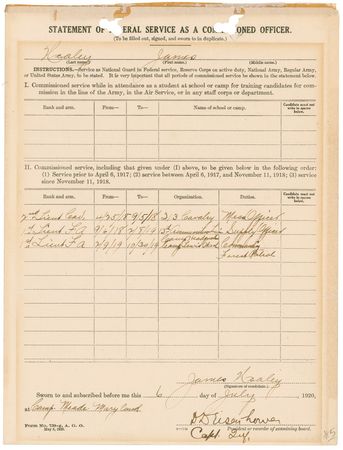 STATEMENT OF FEDERAL SERVICE AS A COMMISSIONED OFFICER.
(To be filled out, signed, and sworn to in duplicate.)
Kealey James
(Last name) (First name.) (Middle name.)
INSTRUCTIONS.—Service as National Guard in Federal service, Reserve Corps on active duty, National Army, Regular Army,
or United States Army, to be stated. It is very important that all periods of commissioned service be shown in the statement below.
I. Commissioned service while in attendance as a student at school or camp for training candidates for com-
mission in the line of the Army, in the Air Service, or in any staff corps or department.
Rank and arm. From— To— Name of school or camp. Candidate must not write in spaces below.
II. Commissioned service, including that given under (I) above, to be given below in the following order:
(1) Service prior to April 6, 1917; (2) service between April 6, 1917, and November 11, 1918; (3) service
since November 11, 1918.
Rank and arm. From— To— Organization. Duties. Candidate must not write in spaces below.
2nd Lieut Cav. 9/5/18 Cavalry Mess Officer
1st Lieut F.A. 9/6/18 2/8/19 Ammunition Supply Officer
1st Lieut F.A. 2/9/19 10/30/19 Camp
Forest Patrol
James Kealey
(Signature of candidate.)
Sworn to and subscribed before me this 6 day of July 1920,
at Camp Meade Maryland
D D Eisenhower
President or recorder of examining board.
Capt. Inf.
Form No. 739-g, A. G. O.